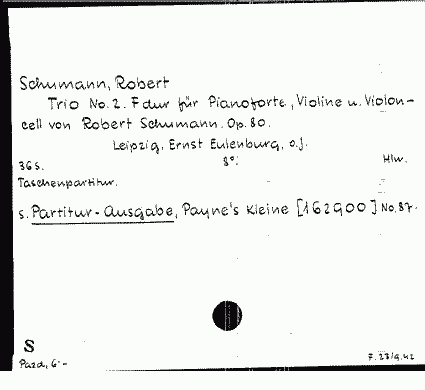 Schumann, Robert
Trio No. 2. F dur für Pianoforte, Violine u. Violon-
cell von Robert Schumann. Op. 80.
Leipzig, Ernst Eulenburg, o.J.
36 S. 8°. Hlw.
Taschenpartitur.
s. Partitur-Ausgabe, Payne's Kleine [162900] No. 87.
S
Pazd, 6.- 7. 23/9.42